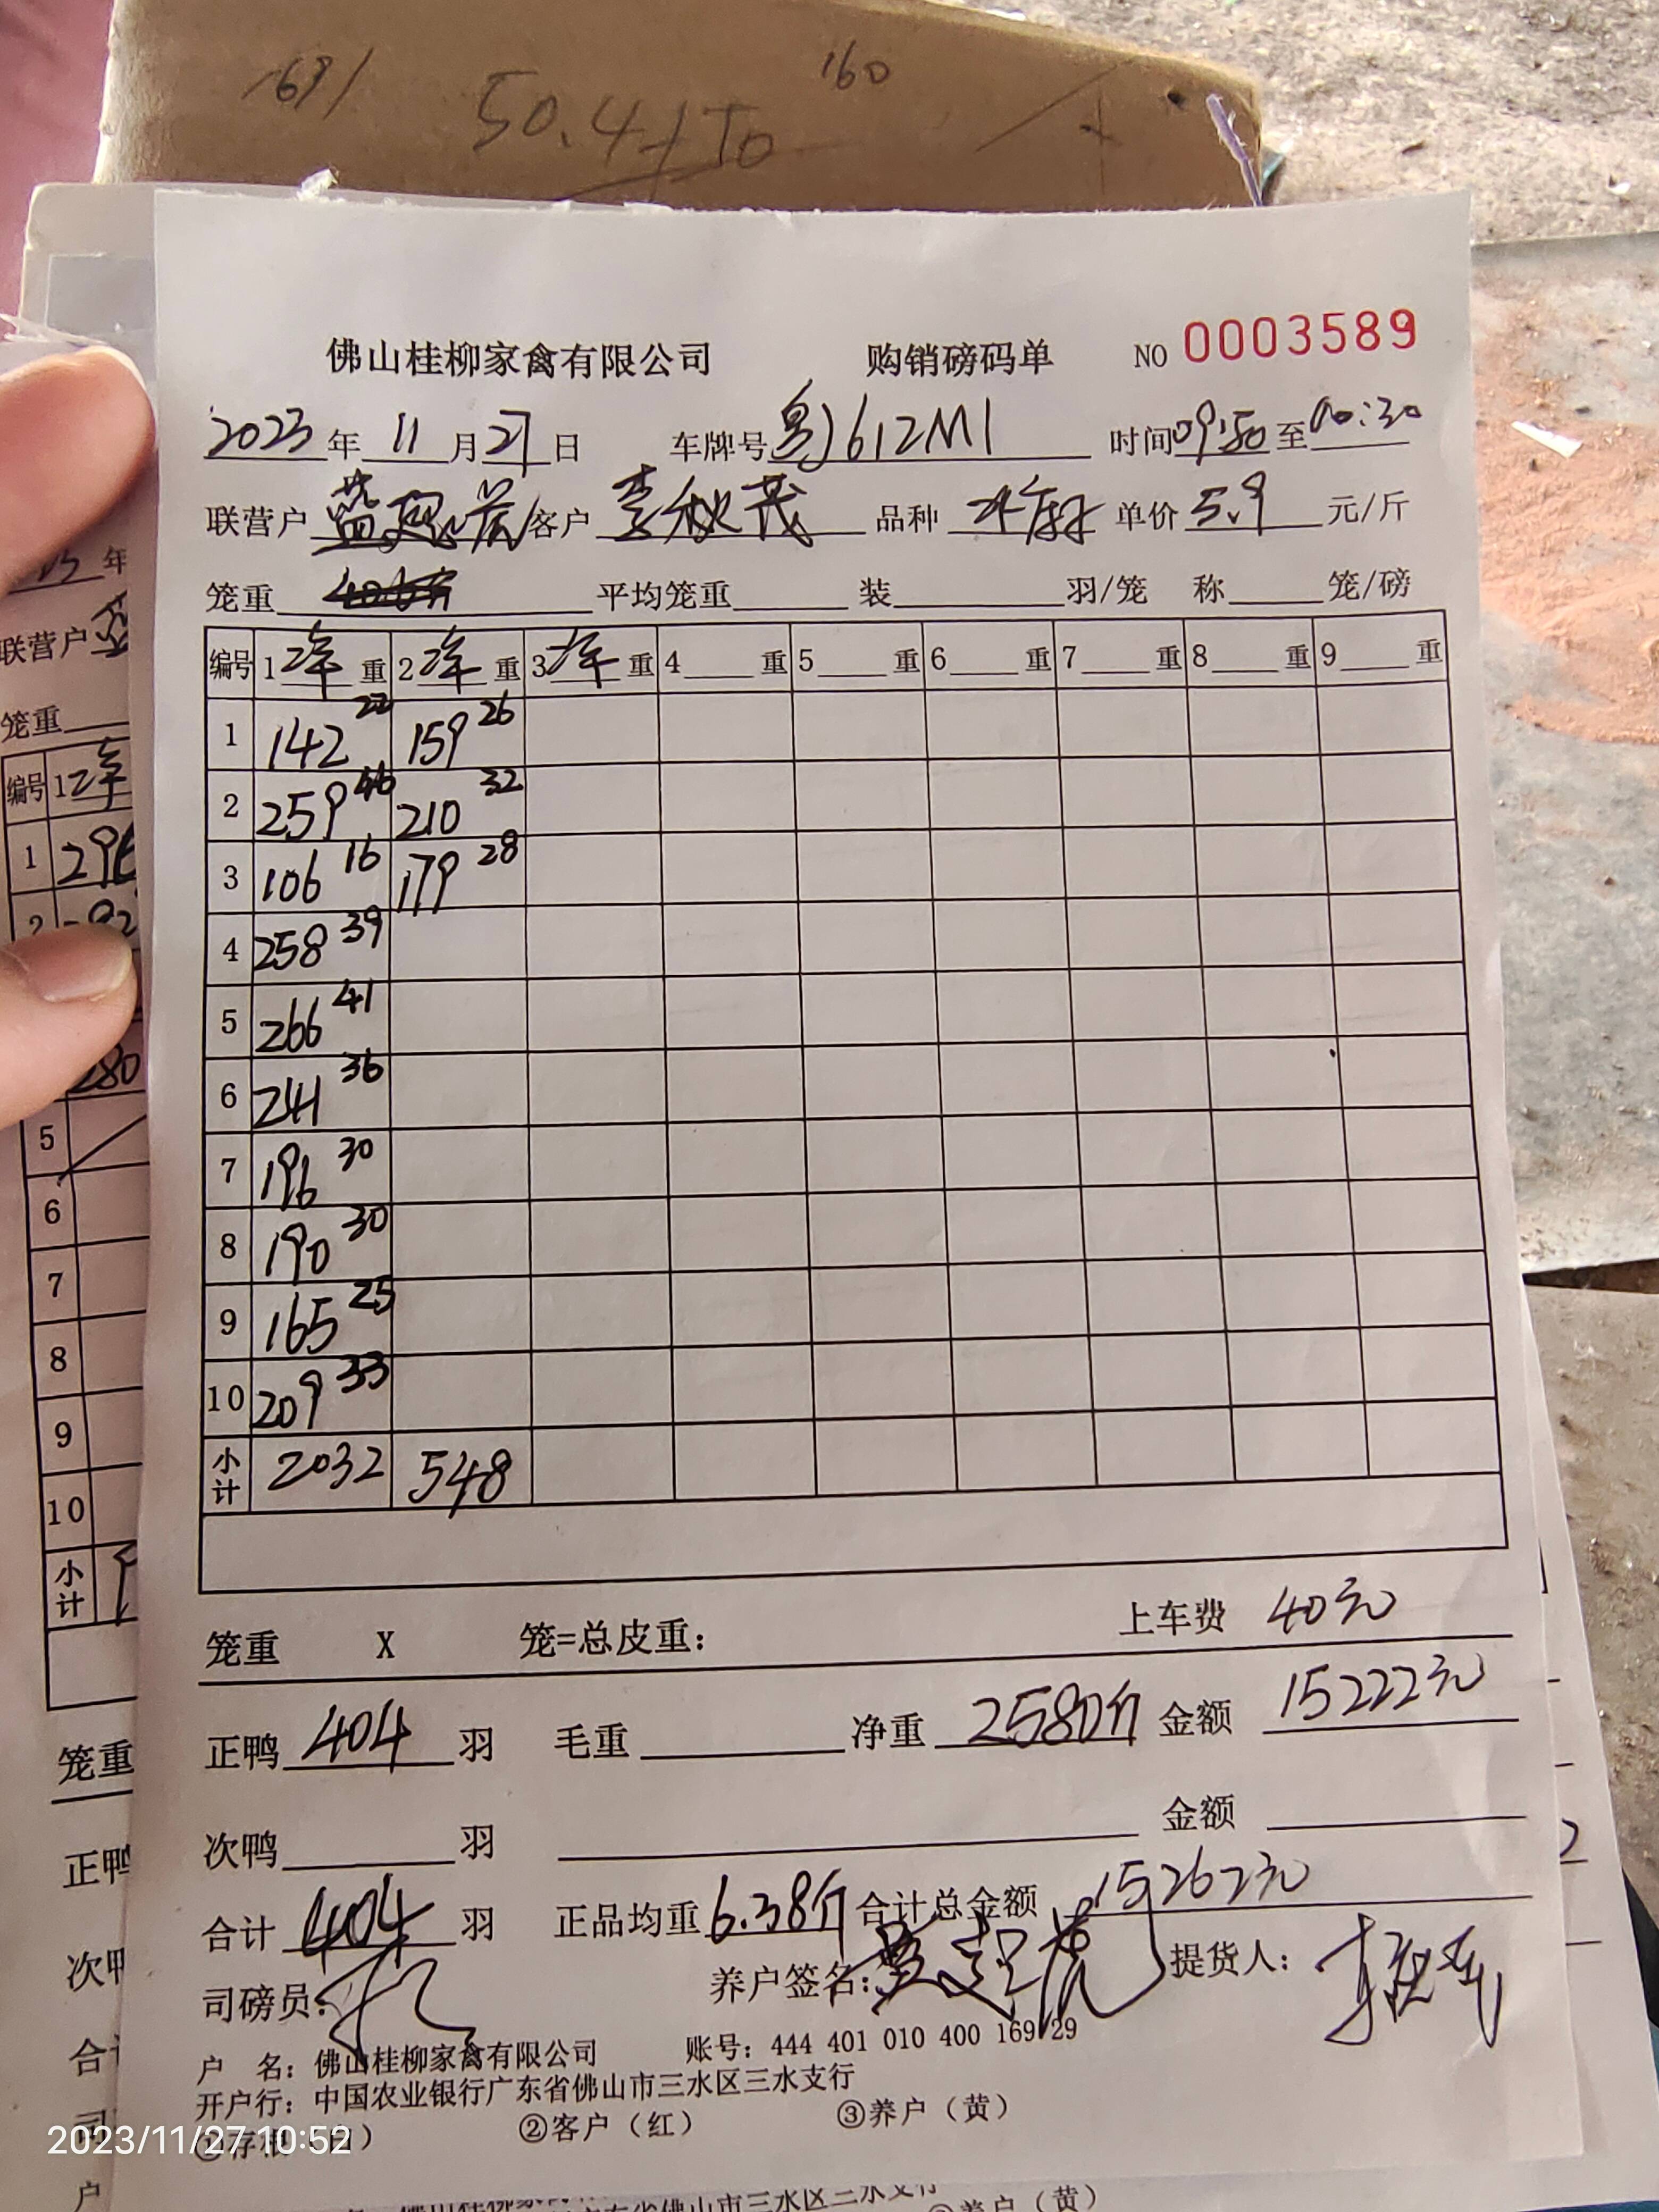 1691 50.4+70 160
佛山桂柳家禽有限公司 购销磅码单 NO 0003589
2023年 11月 27日 车牌号 粤J612M1 时间 09:50 至 10:30
联营户 客户 李秋茂 品种 单价 5.9 元/斤
笼重 平均笼重 装 羽/笼 称 笼/磅
编号 1 净 重 2 净 重 3 净 重 4 重 5 重 6 重 7 重 8 重 9 重
1 142 22 159 26
2 259 46 210 32
3 106 16 179 28
4 258 39
5 266 41
6 241 36
7 196 30
8 190 30
9 165 25
10 209 33
小计 2032 548
笼重 X 笼=总皮重: 上车费 40元
正鸭 404 羽 毛重 净重 2580斤 金额 15222元
次鸭 羽 金额
合计 404 羽 正品均重 6.38斤 合计总金额 15262元
司磅员: 养户签名: 提货人:
户 名: 佛山桂柳家禽有限公司 账号: 444 401 010 400 169 29
开户行: 中国农业银行广东省佛山市三水区三水支行
①存根(白) ②客户(红) ③养户(黄)
2023/11/27 10:52
年
联营户
笼重
编号 1 净
1 296
2
280
5
6
7
8
9
10
小计
笼重
正鸭
次鸭
合计
户
佛山桂柳家禽
广东省佛山市三水区三水支行
③养户(黄)